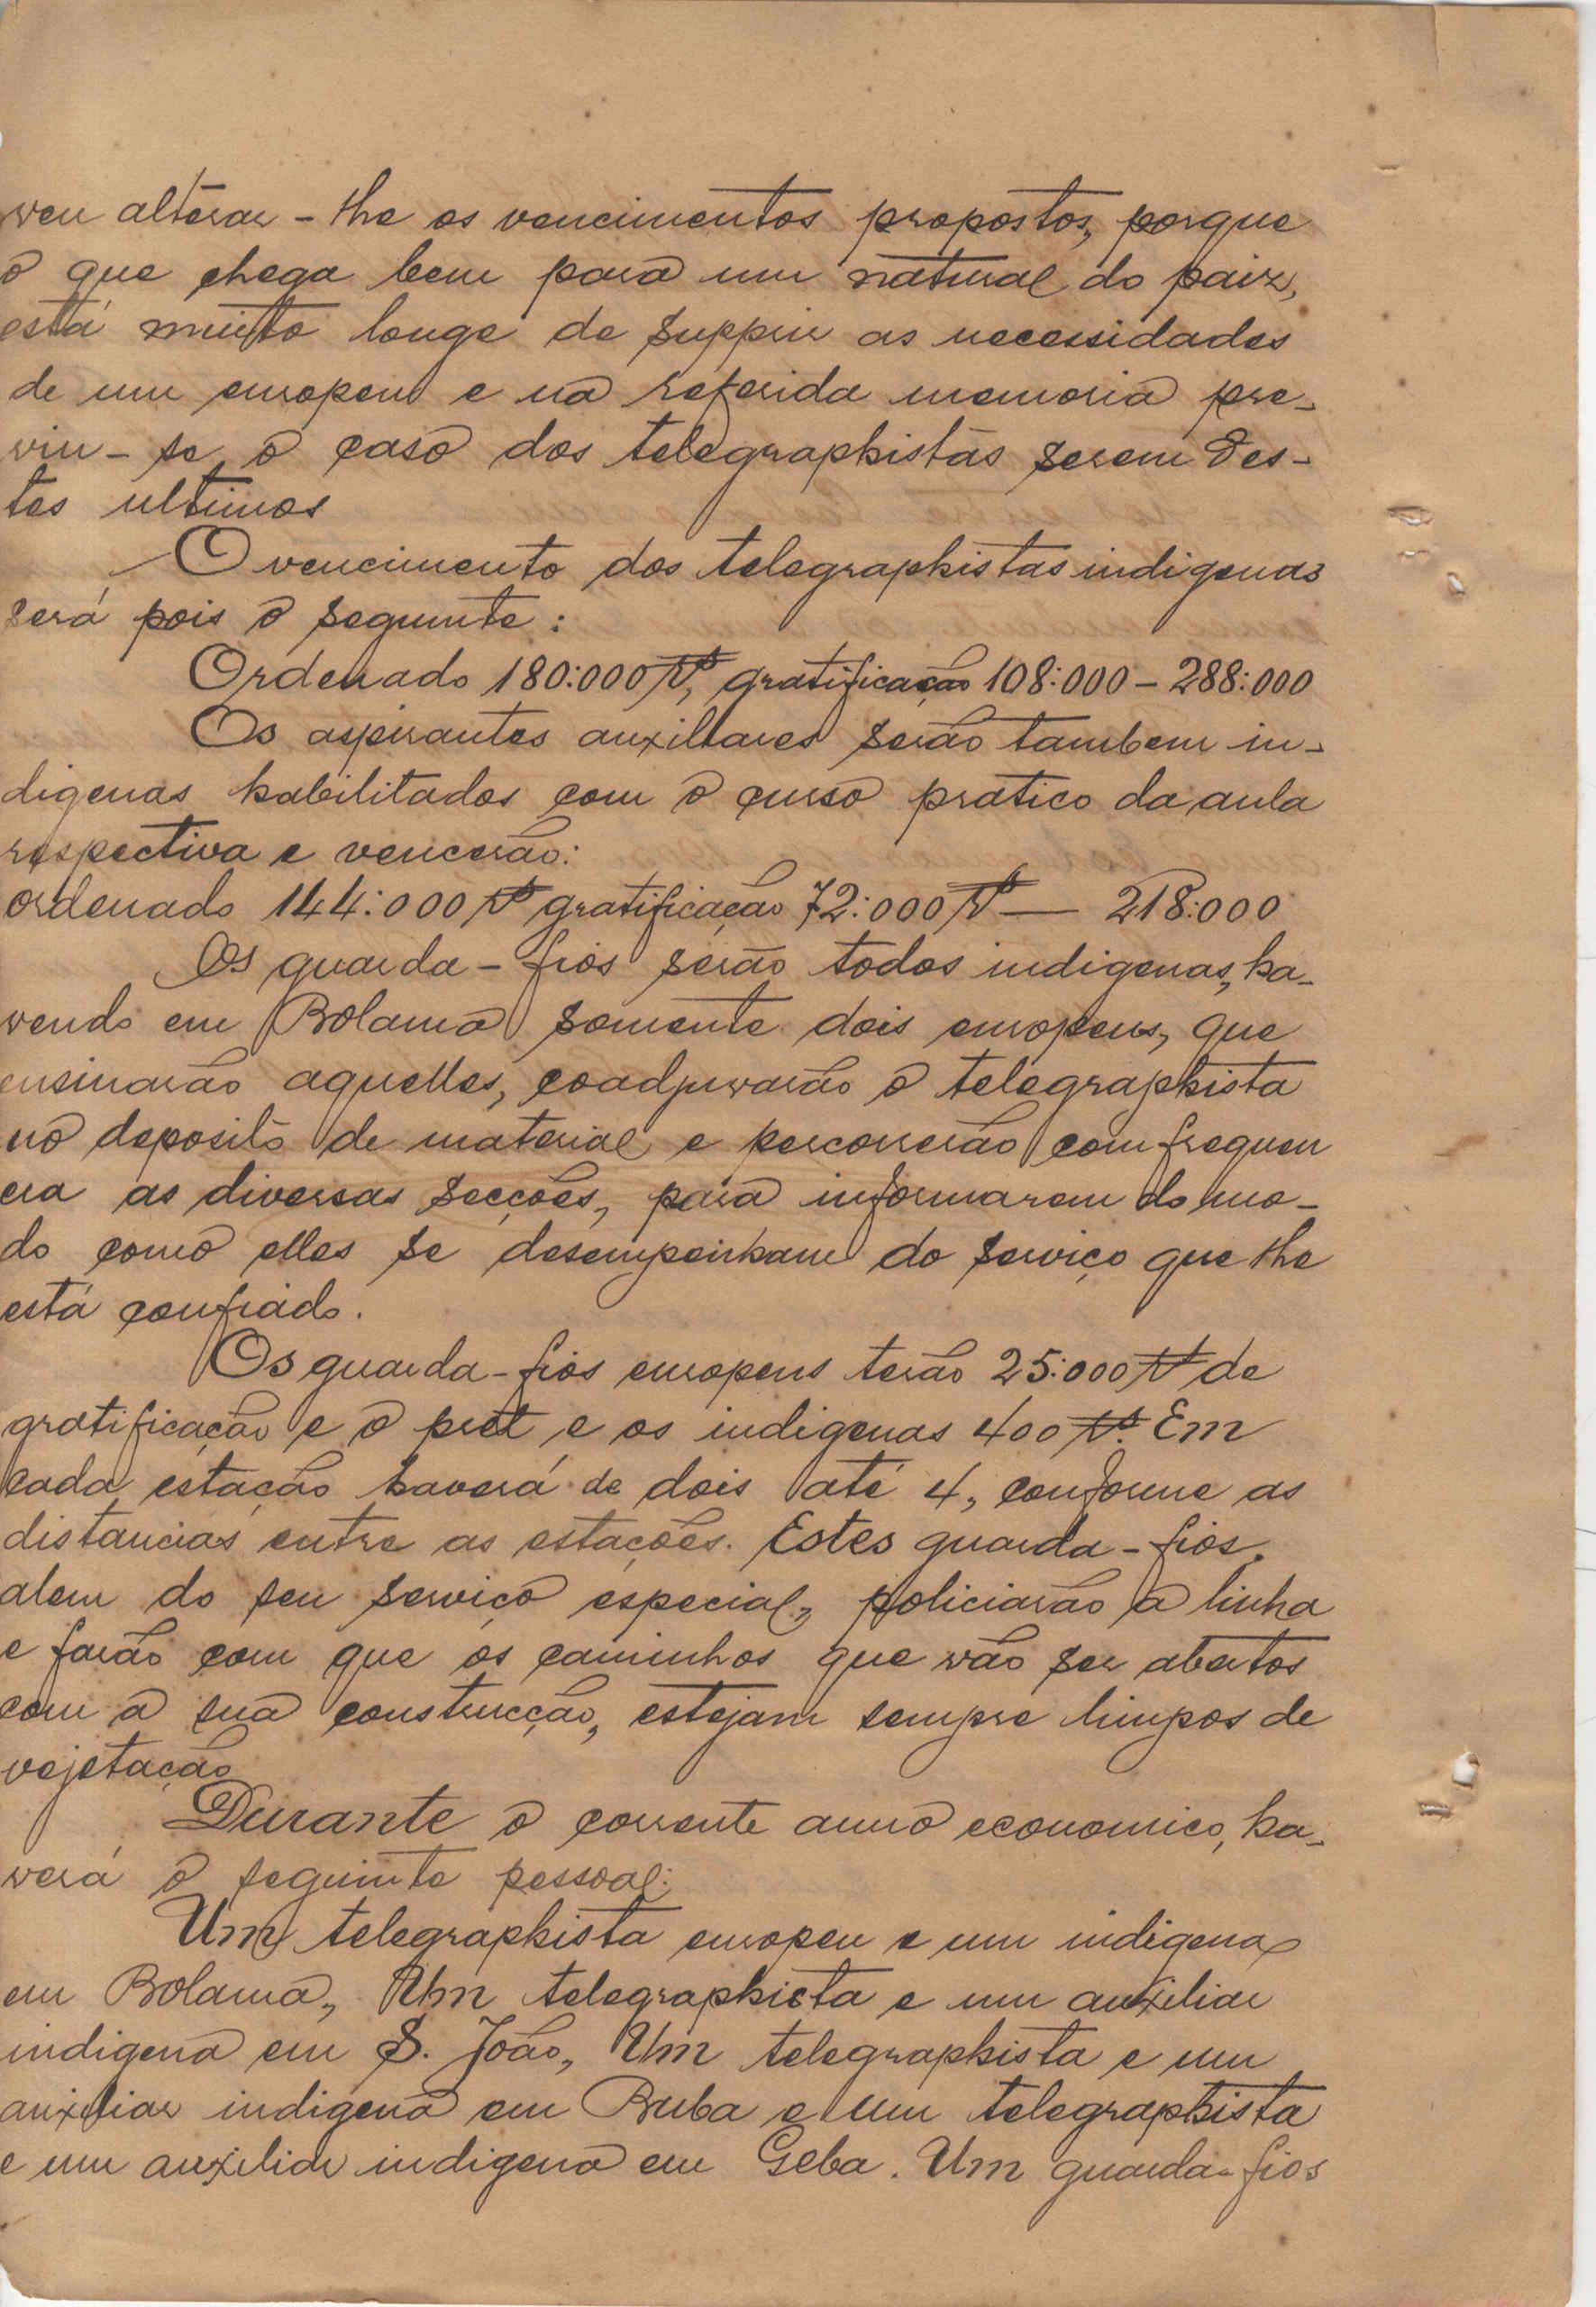 veu alterar-lhe os vencimentos propostos, porque
o que chega bem para um natural do paiz,
está muito longe de supprir as necessidades
de um europeu e na referida memoria pre-
viu-se o caso dos telegraphistas serem des-
tes ultimos
O vencimento dos telegraphistas indigenas
será pois o seguinte:
Ordenado 180:000 rs, gratificação 108:000 - 288:000
Os aspirantes auxiliares serão tambem in-
digenas habilitados com o curso pratico da aula
respectiva e vencerão:
ordenado 144:000 rs gratificação 72:000 rs — 218:000
Os guarda-fios serão todos indigenas, ha-
vendo em Bolama somente dois europeus, que
ensinarão aquelles, coadjuvarão o telegraphista
no deposito de material e percorrerão com frequen
cia as diversas secções, para informarem do mo-
do como elles se desempenham do serviço que lhe
está confiado.
Os guarda-fios europeus terão 25:000 rs de
gratificação e o pret e os indigenas 400 rs. Em
cada estação haverá de dois até 4, conforme as
distancias entre as estações. Estes guarda-fios,
alem do seu serviço especial, policiarão a linha
e farão com que os caminhos que vão ser abertos
com a sua construcção, estejam sempre limpos de
vejetação
Durante o corrente anno economico, ha-
verá o seguinte pessoal:
Um telegraphista europeu e um indigena
em Bolama, Um telegraphista e um auxiliar
indigena em S. João, Um telegraphista e um
auxiliar indigena em Buba e um telegraphista
e um auxiliar indigena em Geba. Um guarda-fios